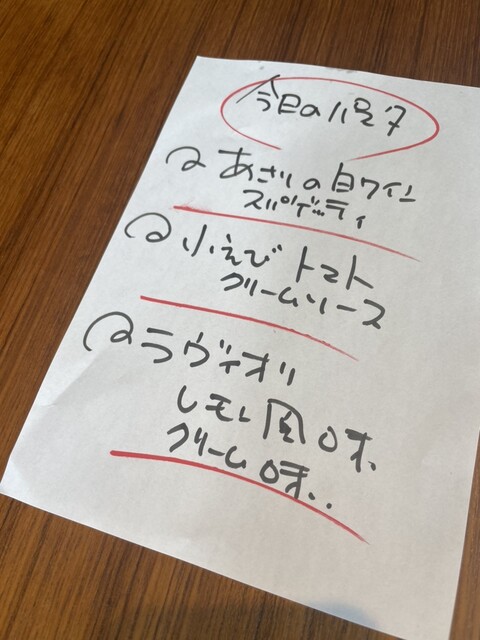 今日のパスタ
あさりの白ワイン
スパゲッティ
小えびトマト
クリームソース
ラヴィオリ
レモン風味
クリーム味..